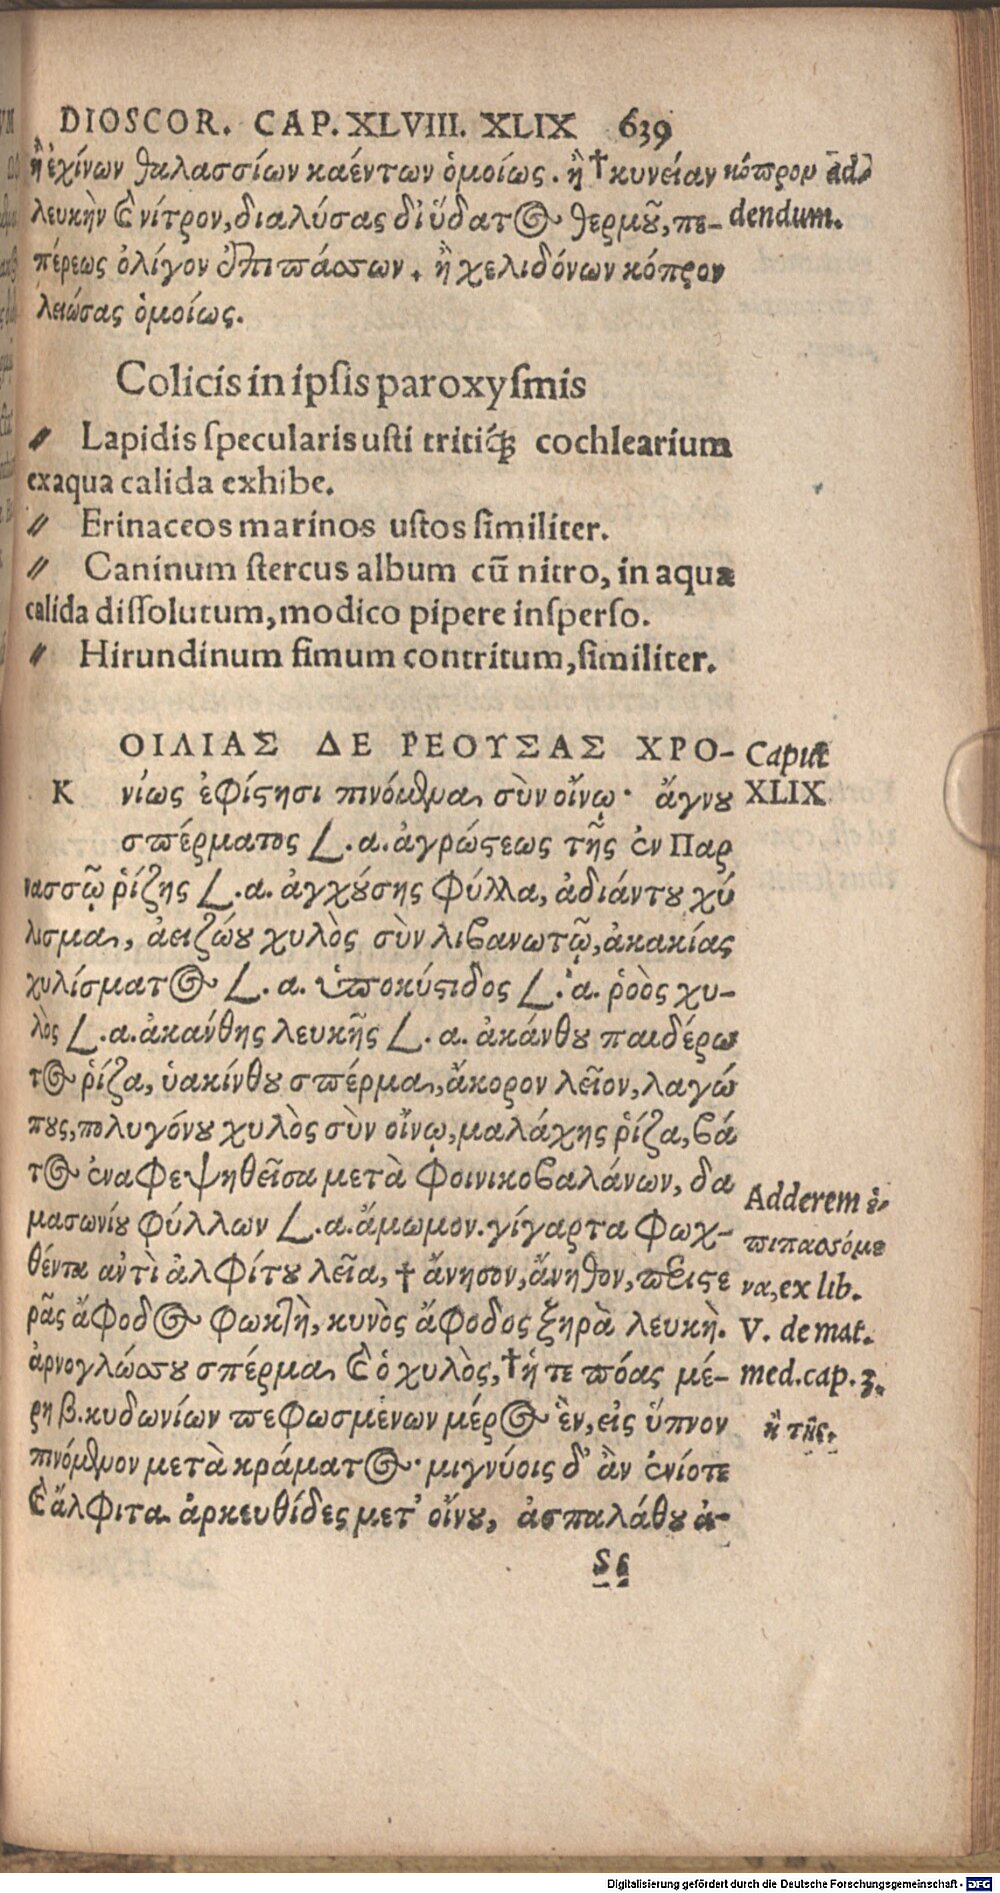 DIOSCOR. CAP. XLVIII. XLIX 639
ἢ ἐχίνων θαλασσίων καέντων ὁμοίως. ἢ † κυνείαν
λευκὴν καὶ νίτρον, διαλύσας δι' ὕδατος θερμοῦ, πε-
πέρεως ὀλίγον ἐπιπάσσων. ἢ χελιδόνων κόπρον
λειώσας ὁμοίως.
κόπρον ad
dendum.
Colicis in ipsis paroxysmis
〃 Lapidis specularis usti tritiq́; cochlearium
ex aqua calida exhibe.
〃 Erinaceos marinos ustos similiter.
〃 Caninum stercus album cū nitro, in aqua
calida dissolutum, modico pipere insperso.
〃 Hirundinum fimum contritum, similiter.
Κ ΟΙΛΙΑΣ ΔΕ ΡΕΟΥΣΑΣ ΧΡΟ-
νίως ἐφίστησι πινόμενα σὺν οἴνῳ· ἄγνου
σπέρματος L. α. ἀγρώστεως τῆς ἐν Παρ
νασσῷ ῥίζης L. α. ἀγχούσης φύλλα, ἀδιάντου χύ
λισμα, ἀειζώου χυλὸς σὺν λιβανωτῷ, ἀκακίας
χυλίσματος L. α. ὑποκύστιδος L. α. ῥοὸς χυ-
λὸς L. α. ἀκάνθης λευκῆς L. α. ἀκάνθου παιδέρω
τος ῥίζα, ὑακίνθου σπέρμα, ἄκορον λεῖον, λαγώ
πους, πολυγόνου χυλὸς σὺν οἴνῳ, μαλάχης ῥίζα, βά
τος ἐναφεψηθεῖσα μετὰ φοινικοβαλάνων, δα
μασωνίου φύλλων L. α. ἄμωμον. γίγαρτα φωχ-
θέντα ἀντὶ ἀλφίτου λεῖα, † ἄνησον, ἄνηθον, περιστε
ρᾶς ἄφοδος φωκτὴ, κυνὸς ἄφοδος ξηρὰ λευκὴ.
ἀρνογλώσσου σπέρμα καὶ ὁ χυλὸς, † ἥ τε πόας μέ-
ρη β. κυδωνίων πεφωσμένων μέρος ἓν, εἰς ὕπνον
πινόμενον μετὰ κράματος· μιγνύοις δ' ἂν ἐνίοτε
καὶ ἄλφιτα. ἀρκευθίδες μετ' οἴνου, ἀσπαλάθου ἀ-
Caput
XLIX
Adderem ἐ-
πιπασσόμε
να, ex lib.
V. de mat.
med. cap. 3.
ἢ τῆς.
Ss
Digitalisierung gefördert durch die Deutsche Forschungsgemeinschaft - DFG